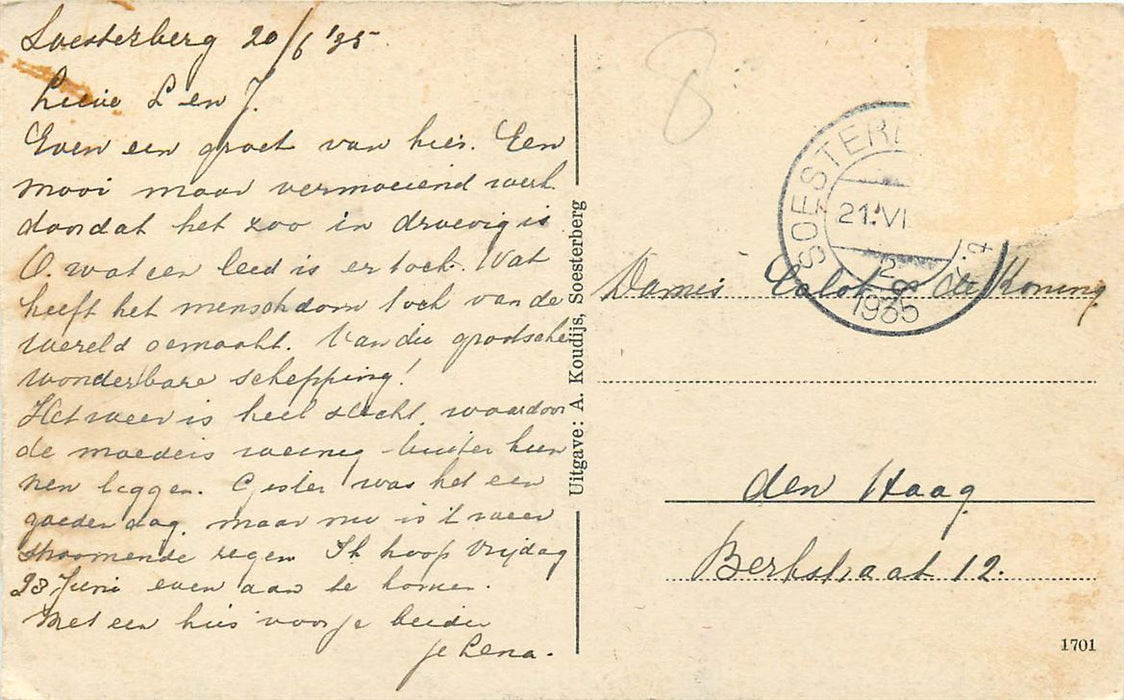 Soesterberg 20/6 '35
Lieve L en J.
Even een groet van hier. Een
mooi maar vermoeiend werk
doordat het zoo in droevig is
O. wat een leed is er toch. Wat
heeft het menschdom toch van de
wereld gemaakt. Van die grootsche
wonderbare schepping!
Het weer is heel slecht, waardoor
de moeders weinig buiten kun
nen liggen. Gister was het een
goeden dag, maar nu is 't weer
stroomende regen. Ik hoop Vrijdag
28 Juni even aan te komen.
Met een kus voor je beide
je Lena.
Uitgave: A. Koudijs, Soesterberg
8
SOESTER
21.VI
2
1935
Dames Calot & de Koning
den Haag
Berkstraat 12.
1701